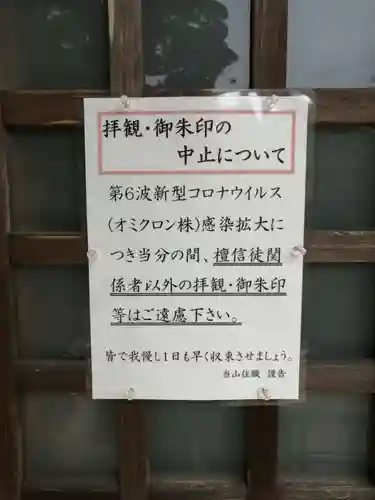 拝観・御朱印の
中止について
第6波新型コロナウイルス
(オミクロン株)感染拡大に
つき当分の間、檀信徒関
係者以外の拝観・御朱印
等はご遠慮下さい。
皆で我慢し1日も早く収束させましょう。
当山住職 謹告